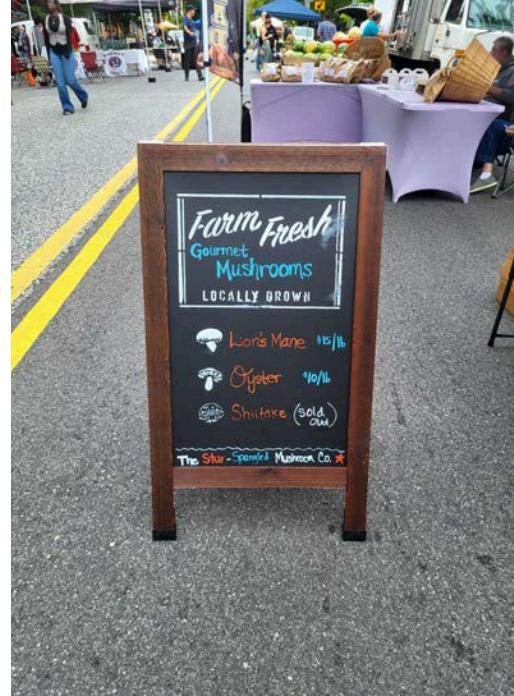 Farm Fresh
Gourmet
Mushrooms
LOCALLY GROWN
Lion's Mane $15/lb
Oyster $10/lb
Shiitake (sold out)
The Star-Spangled Mushroom Co.